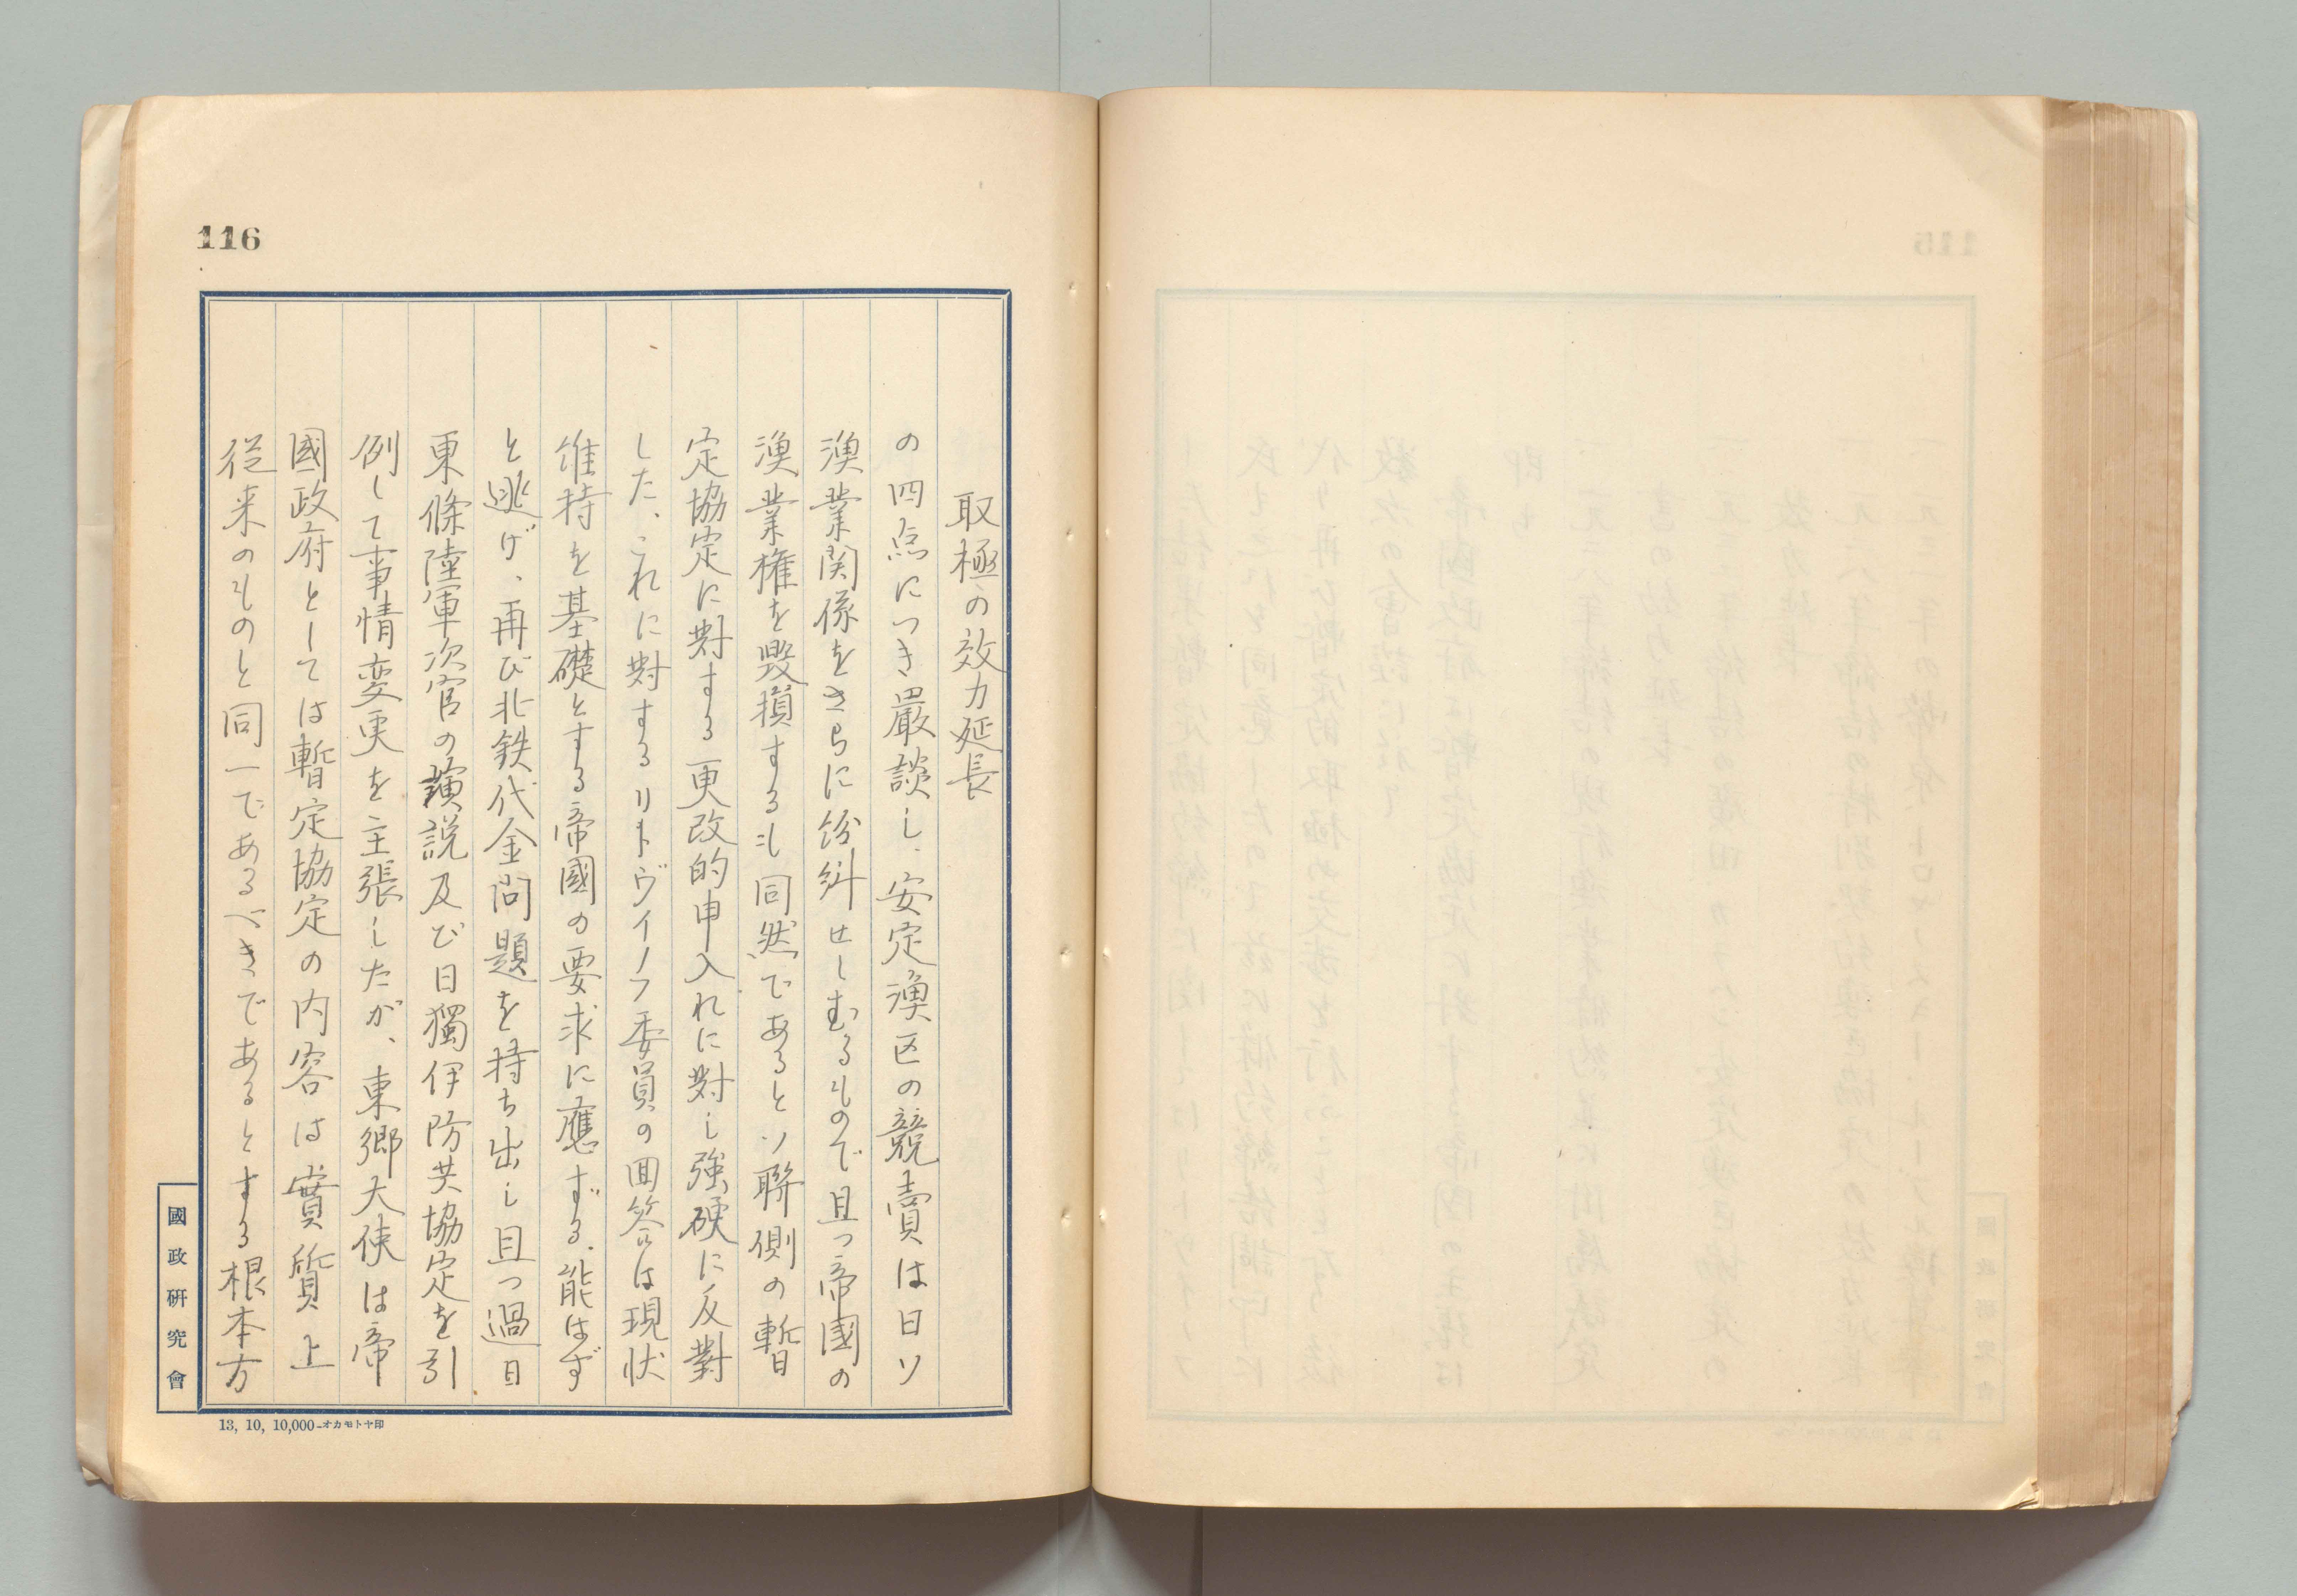 116
取極の效力延長
の四点につき嚴談し、安定漁区の競賣は日ソ
漁業関係をさらに紛糾せしむるもので且つ帝國の
漁業権を毀損するも同然であるとソ聯側の暫
定協定に對する更改的申入れに對し強硬に反對
した、これに對するリトヴイノフ委員の回答は現状
維持を基礎とする帝國の要求に應ずる能はず
と逃げ、再び北鉄代金問題を持ち出し且つ過日
東條陸軍次官の演説及び日獨伊防共協定を引
例して事情変更を主張したが、東郷大使は帝
國政府としては暫定協定の内容は實質上
從来のものと同一であるべきであるとする根本方
國政研究會
13, 10, 10,000-オカモトヤ印